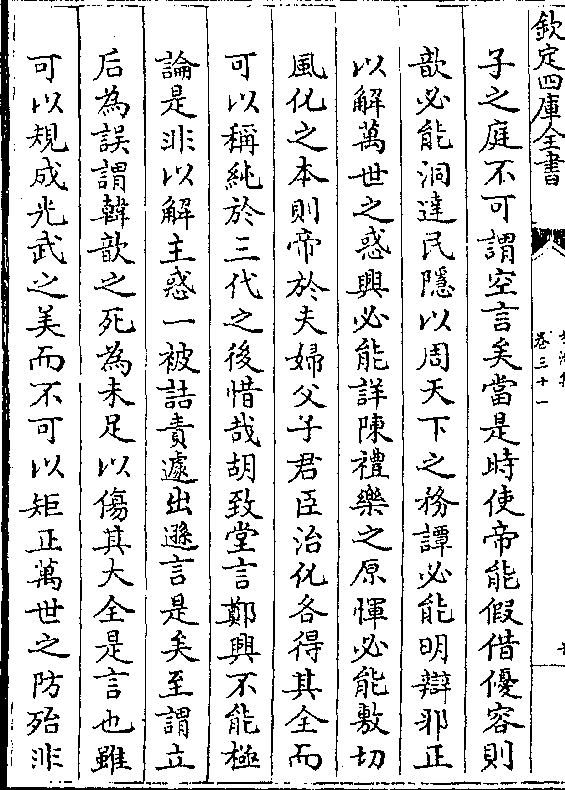 欽定四庫全書
卷三十一
子之庭不可謂空言矣當是時使帝能假借優容則
歆必能洞達民隱以周天下之務譚必能明辯邪正
以解萬世之惑興必能詳陳禮樂之原惲必能敷切
風化之本則帝於夫婦父子君臣治化各得其全而
可以稱純於三代之後惜哉胡致堂言鄭興不能極
論是非以解主惑一被詰責遽出遜言是矣至謂立
后為誤謂韓歆之死為未足以傷其大全是言也雖
可以規成光武之美而不可以矩正萬世之防殆非